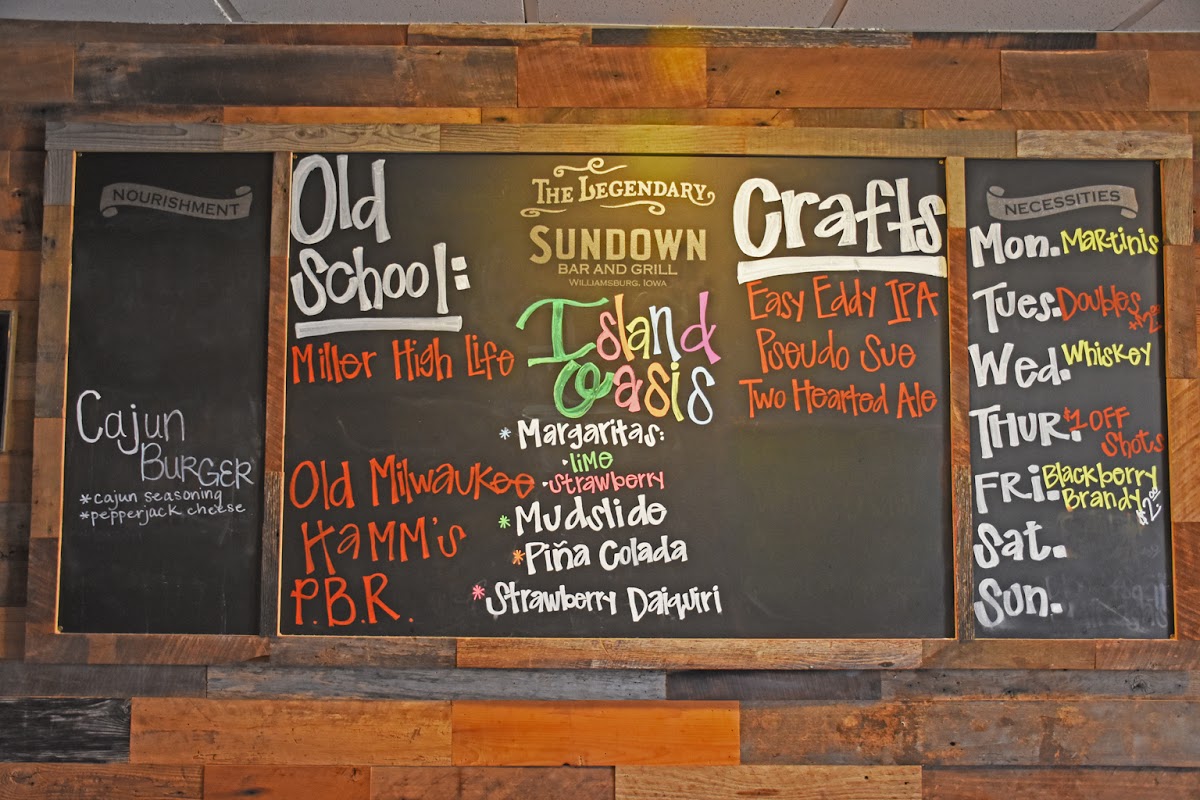 NOURISHMENT
Cajun
BURGER
*cajun seasoning
*pepperjack cheese
Old
School:
Miller High Life
Old Milwaukee
HAMM's
P.B.R.
THE LEGENDARY
SUNDOWN
BAR AND GRILL
WILLIAMSBURG, IOWA
Island
Oasis
* Margaritas:
·lime
·strawberry
* Mudslide
* Piña Colada
* Strawberry Daiquiri
Crafts
Easy Eddy IPA
Pseudo Sue
Two Hearted Ale
NECESSITIES
Mon. Martinis
Tues. Doubles
Wed. Whiskey
THUR. $1 OFF
Shots
FRI: Blackberry
Brandy
$2.00
Sat.
Sun.